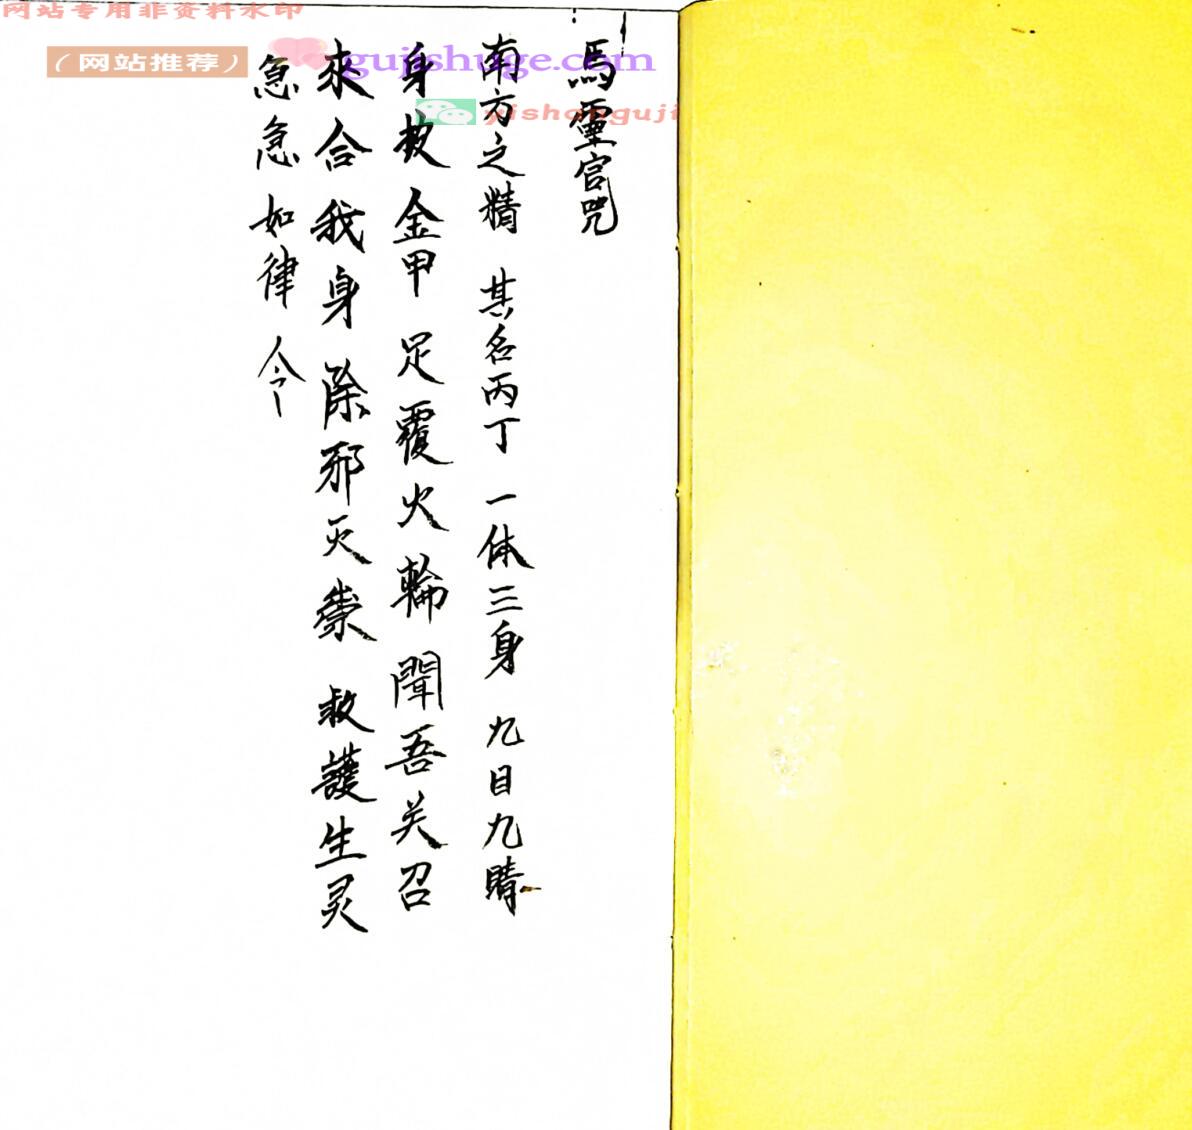 网站专用非资料水印
（网站推荐）
gujishuge.com
yishanguji
馬靈官咒
南方之精 其名丙丁 一体三身 九日九睛
身披金甲 足覆火輪 聞吾关召
來合我身 除邪灭祟 救護生灵
急急如律令